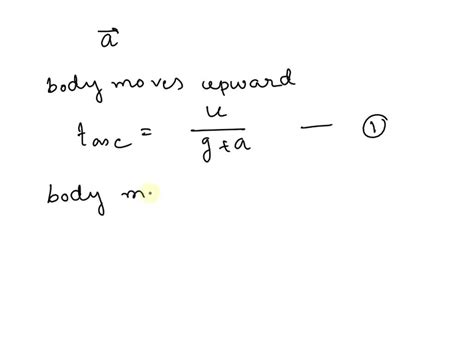 a⃗
body moves upward
t_asc = u/(g+a) — ①
body m